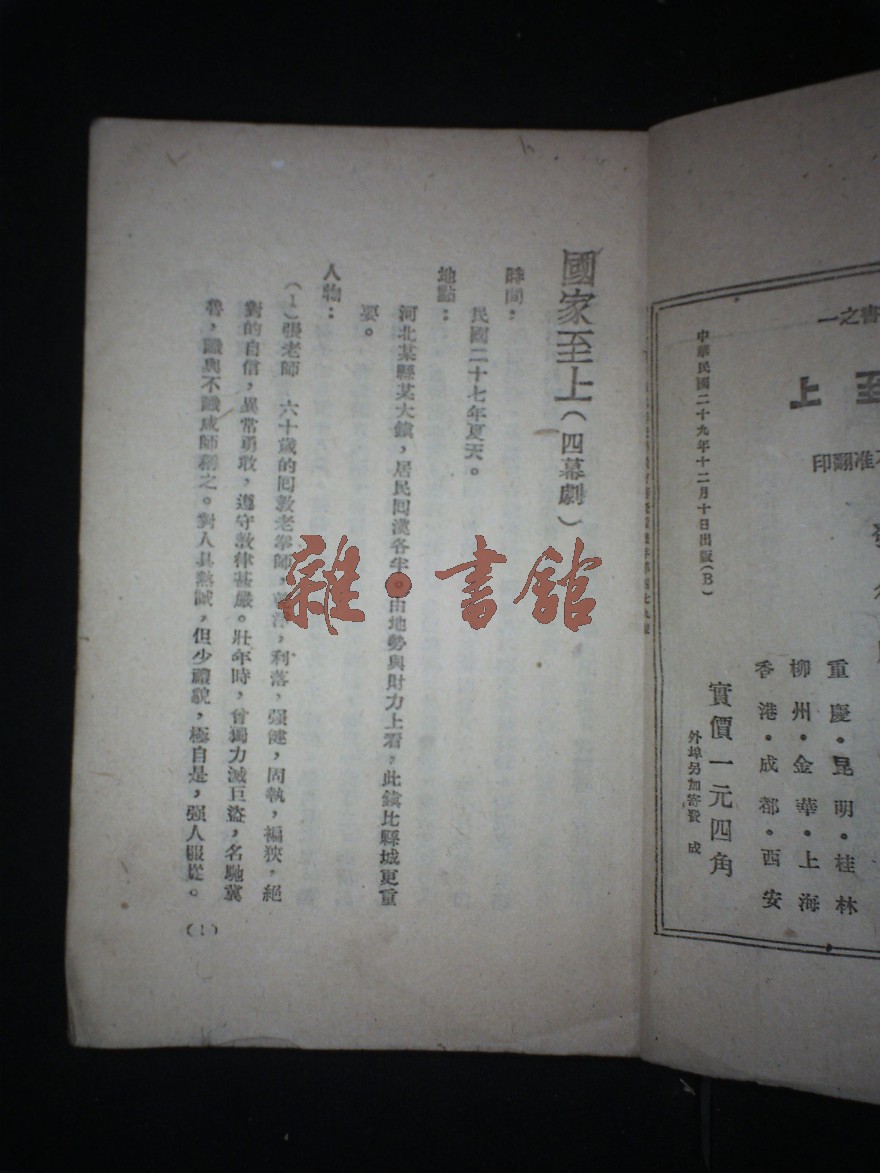 書之一
至上
准翻印
中華民國二十九年十二月十日出版(B)
重慶·昆明·桂林
柳州·金華·上海
香港·成都·西安
實價一元四角
外埠另加寄費
國家至上(四幕劇)
時間:
民國二十七年夏天。
地點:
河北某縣某大鎮,居民回漢各半。由地勢與財力上看,此鎮比縣城更重
要。
人物:
(1)張老師 六十歲的回教老拳師,利落,强健,固執,褊狹,絕
對的自信,異常勇敢,遵守教律甚嚴。壯年時,曾獨力滅巨盜,名馳冀
魯,識與不識咸師稱之。對人具熱誠,但少禮貌,極自是,强人服從。
(1)
雜·書舘